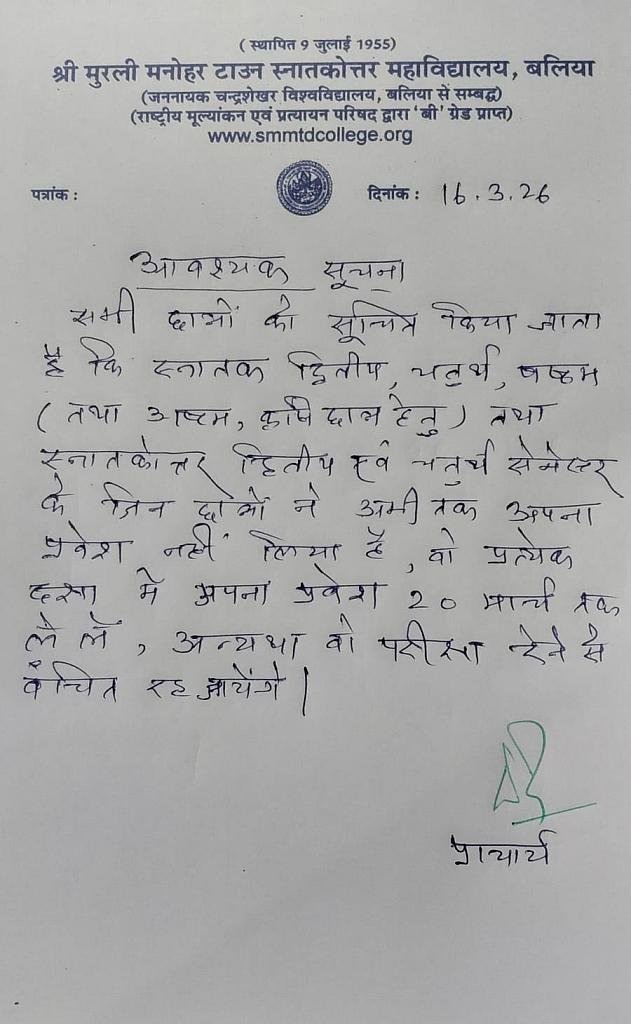 ( स्थापित 9 जुलाई 1955)
श्री मुरली मनोहर टाउन स्नातकोत्तर महाविद्यालय, बलिया
(जननायक चन्द्रशेखर विश्वविद्यालय, बलिया से सम्बद्ध)
(राष्ट्रीय मूल्यांकन एवं प्रत्यायन परिषद द्वारा 'बी' ग्रेड प्राप्त)
www.smmtdcollege.org
पत्रांक : दिनांक : 16.3.26
आवश्यक सूचना
सभी छात्रों को सूचित किया जाता
है कि स्नातक द्वितीय, चतुर्थ, षष्ठम
(तथा अष्टम, कृषि छात्र हेतु) तथा
स्नातकोत्तर द्वितीय एवं चतुर्थ सेमेस्टर
के जिन छात्रों ने अभी तक अपना
प्रवेश नहीं लिया है, वो प्रत्येक
दशा में अपना प्रवेश 20 मार्च तक
ले लें, अन्यथा वो परीक्षा देने से
वंचित रह जायेंगे।
प्राचार्य